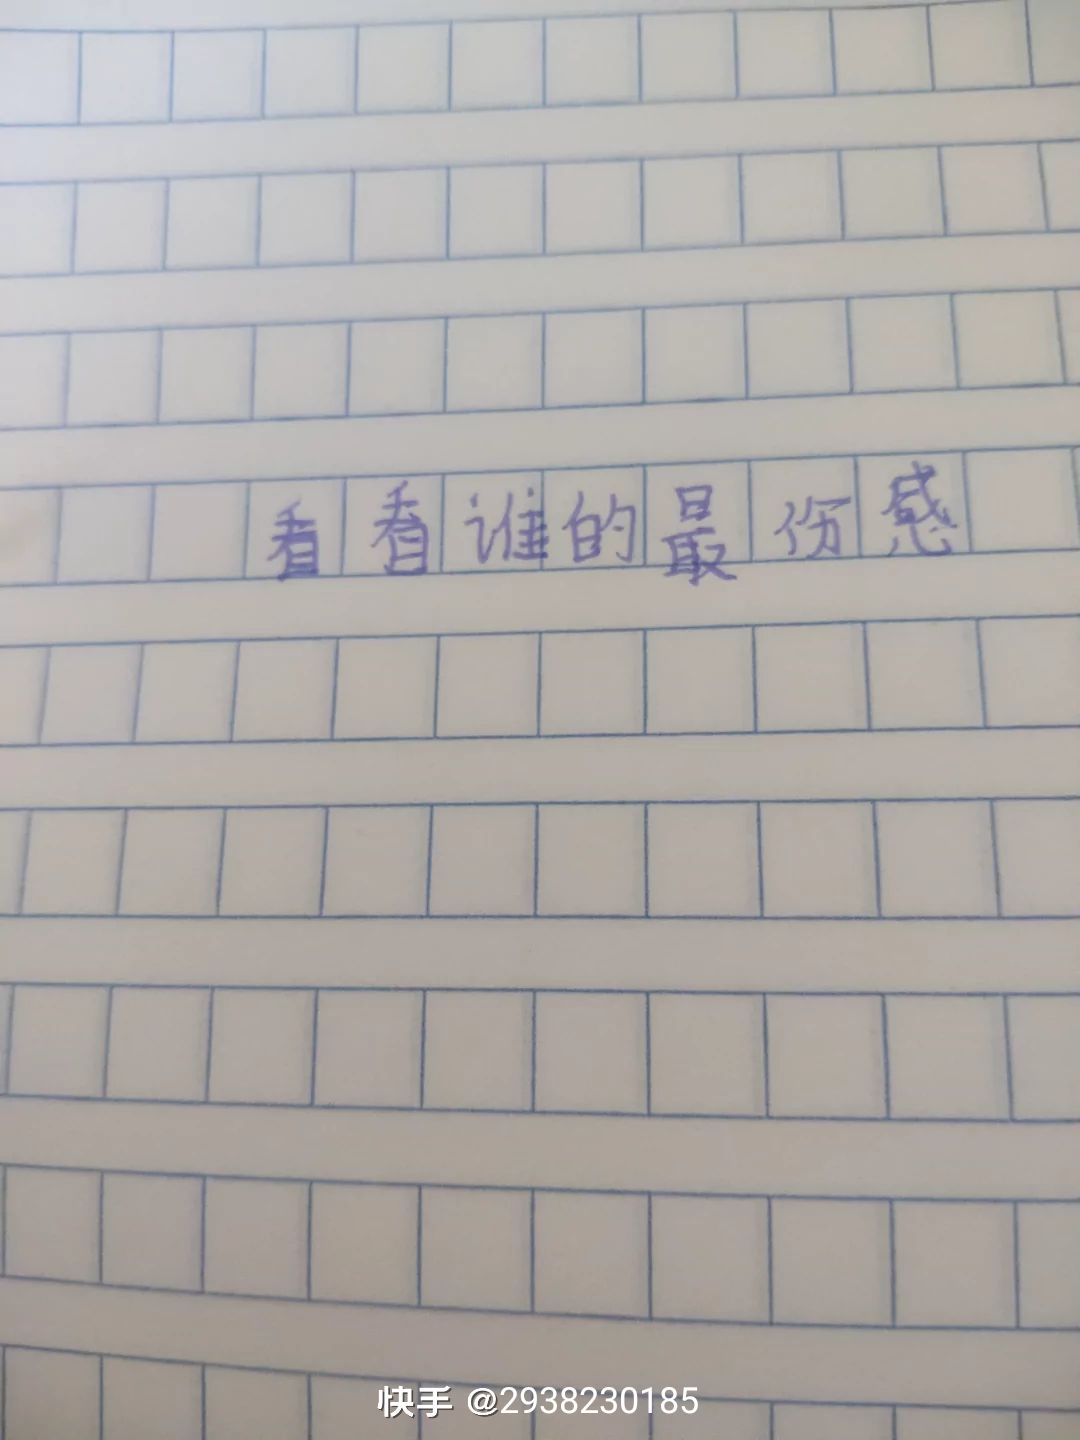 看看谁的最伤感
快手 @2938230185